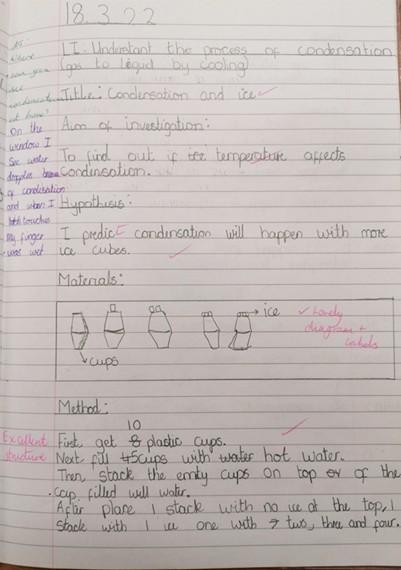 18.3.22
LI: Understant the process of condensation
(gas to liquid by cooling)
Title: Condensation and ice
Aim of investigation:
To find out if temperature affects
Condensation.
Hypothesis:
I predict condensation will happen with more
ice cubes.
Materials:
ice
cups
Lovely
diagram +
labels
Method:
10
First, get 8 plastic cups.
Next fill 5 cups with water hot water.
Then stack the emty cups on top of the
cup filled will water.
After place 1 stack with no ice at the top, 1
stack with 1 ice one with two, three and four.
Excellent
structure
where
can you
see
condensation
at home?
On the
window I
See water
dropples
of condensation
and when I
touches
My finger
was wet